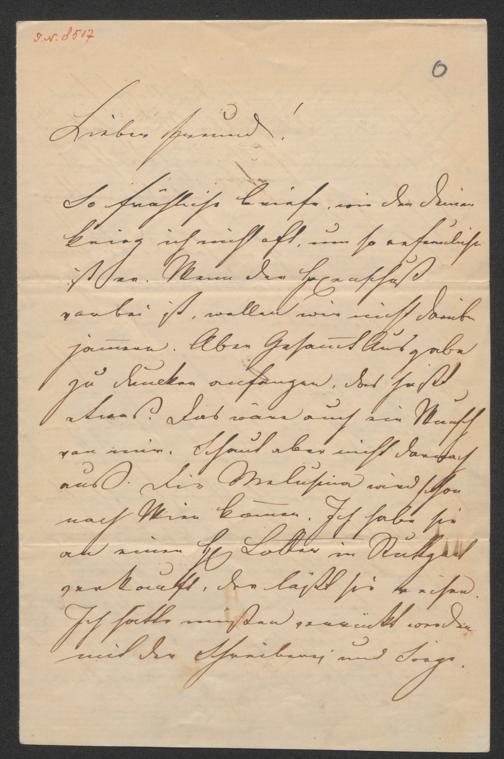 I. N. 8517
0
Lieber Freund!
So fröhliche Briefe, wie der Deine
krieg ich nicht oft, um so erfreulicher
ist er. Wenn der Hexenschuß
vorbei ist, wollen wir nicht drüber
jam̅ern. Aber Gesam̅tAusgabe
zu drucken anfangen, das heißt
etwas? Das wäre auch ein Wunsch
von mir. Schaut aber nicht darnach
aus. Die Melusina wird schon
nach Wien kom̅en. Ich habe sie
an einen H Lotter in Stuttgart
verkauft, der läßt sie reisen.
Ich hätte müßen verrückt werden
mit der Schreiberei und Sorge.